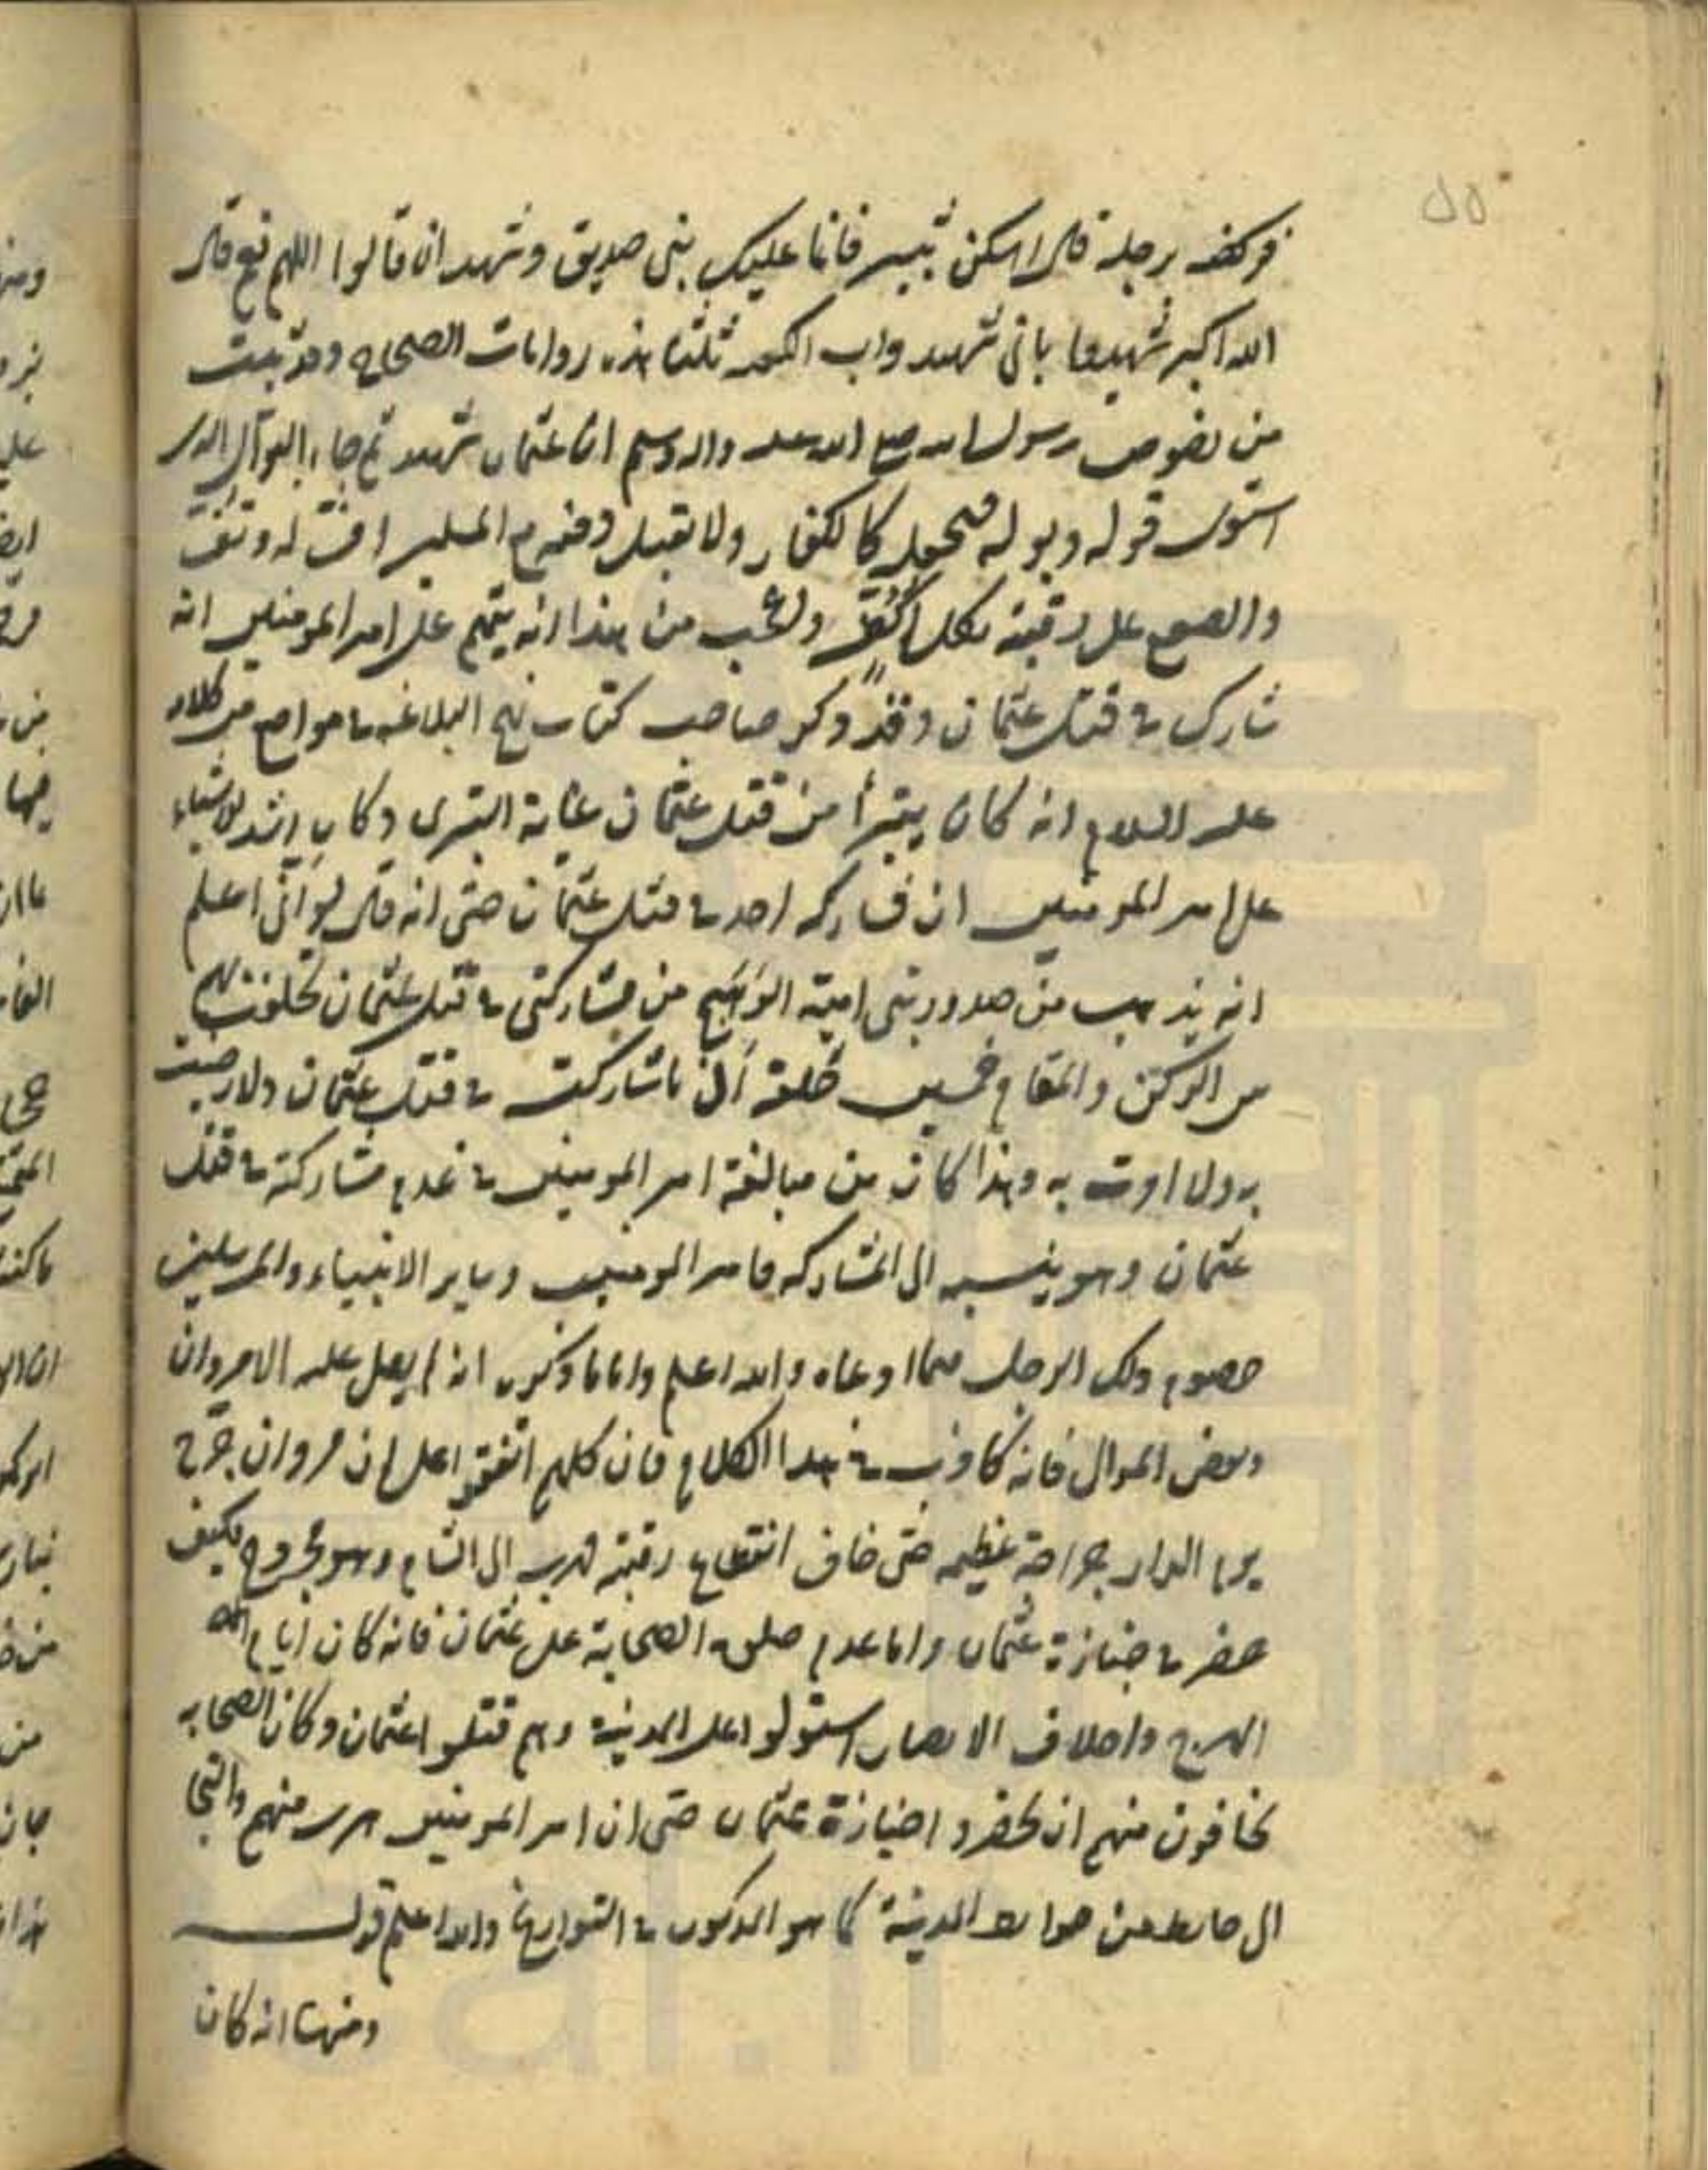 فركضه برجله قال اسكن ثبير فانما عليك نبي صديق وشهيدان قالوا اللهم نعم قال
الله اكبر شهدوا باني شهيد ورب الكعبة ثلثا هذه روايات الصحاح وقد ثبت
من نصوص رسول الله صلى الله عليه واله وسلم ان عثمان شهيد ثم جاء البوال الذي
استوى قوله وبوله فيجعله كالكفار ولا يقبل دفنه مع المسلمين اف له وتف
والصفع على رقبته بكل اكف والعجب من هذا انه يتهم على امير المومنين انه
شارك في قتل عثمان وقد ذكر صاحب كتاب نهج البلاغه في مواضع من كلامه
عليه السلام انه كان يتبرأ من قتل عثمان غاية التبري وكان اشد الاشياء
على امير المومنين ان يشاركه احد في قتل عثمان حتى انه قال لو اني اعلم
انه يذهب من صدور بني امية الوهم من مشاركتي في قتل عثمان لحلفت لهم
بين الركن والمقام خمسين حلفة اني ما شاركت في قتل عثمان ولا رضيت
به ولا امرت به وهذا كان من مبالغة امير المومنين في عدم مشاركته في قتل
عثمان وهو ينسبه الى المشاركه فامير المومنين وساير الانبياء والمرسلين
خصوم ذلك الرجل فيما ادعاه والله اعلم واما ما ذكره انه لم يصل عليه الا مروان
وبعض الموالي فانه كاذب في هذا الكلام فان كلهم اتفقوا على ان مروان جرح
يوم الدار جراحة عظيمه حتى خاف انقطاع رقبته فهرب الى الشام وهو مجروح فكيف
حضر في جنازة عثمان واما عدم صلوة الصحابة على عثمان فانه كان ايام
الهرج واجلاف الامصار استولوا على المدينة وهم قتلوا عثمان وكان الصحابه
يخافون منهم ان يحضروا جنازة عثمان حتى ان امير المومنين هرب منهم والتجأ
الى حايط من حوايط المدينة كما هو المذكور في التواريخ والله اعلم قوله
ومنها انه كان